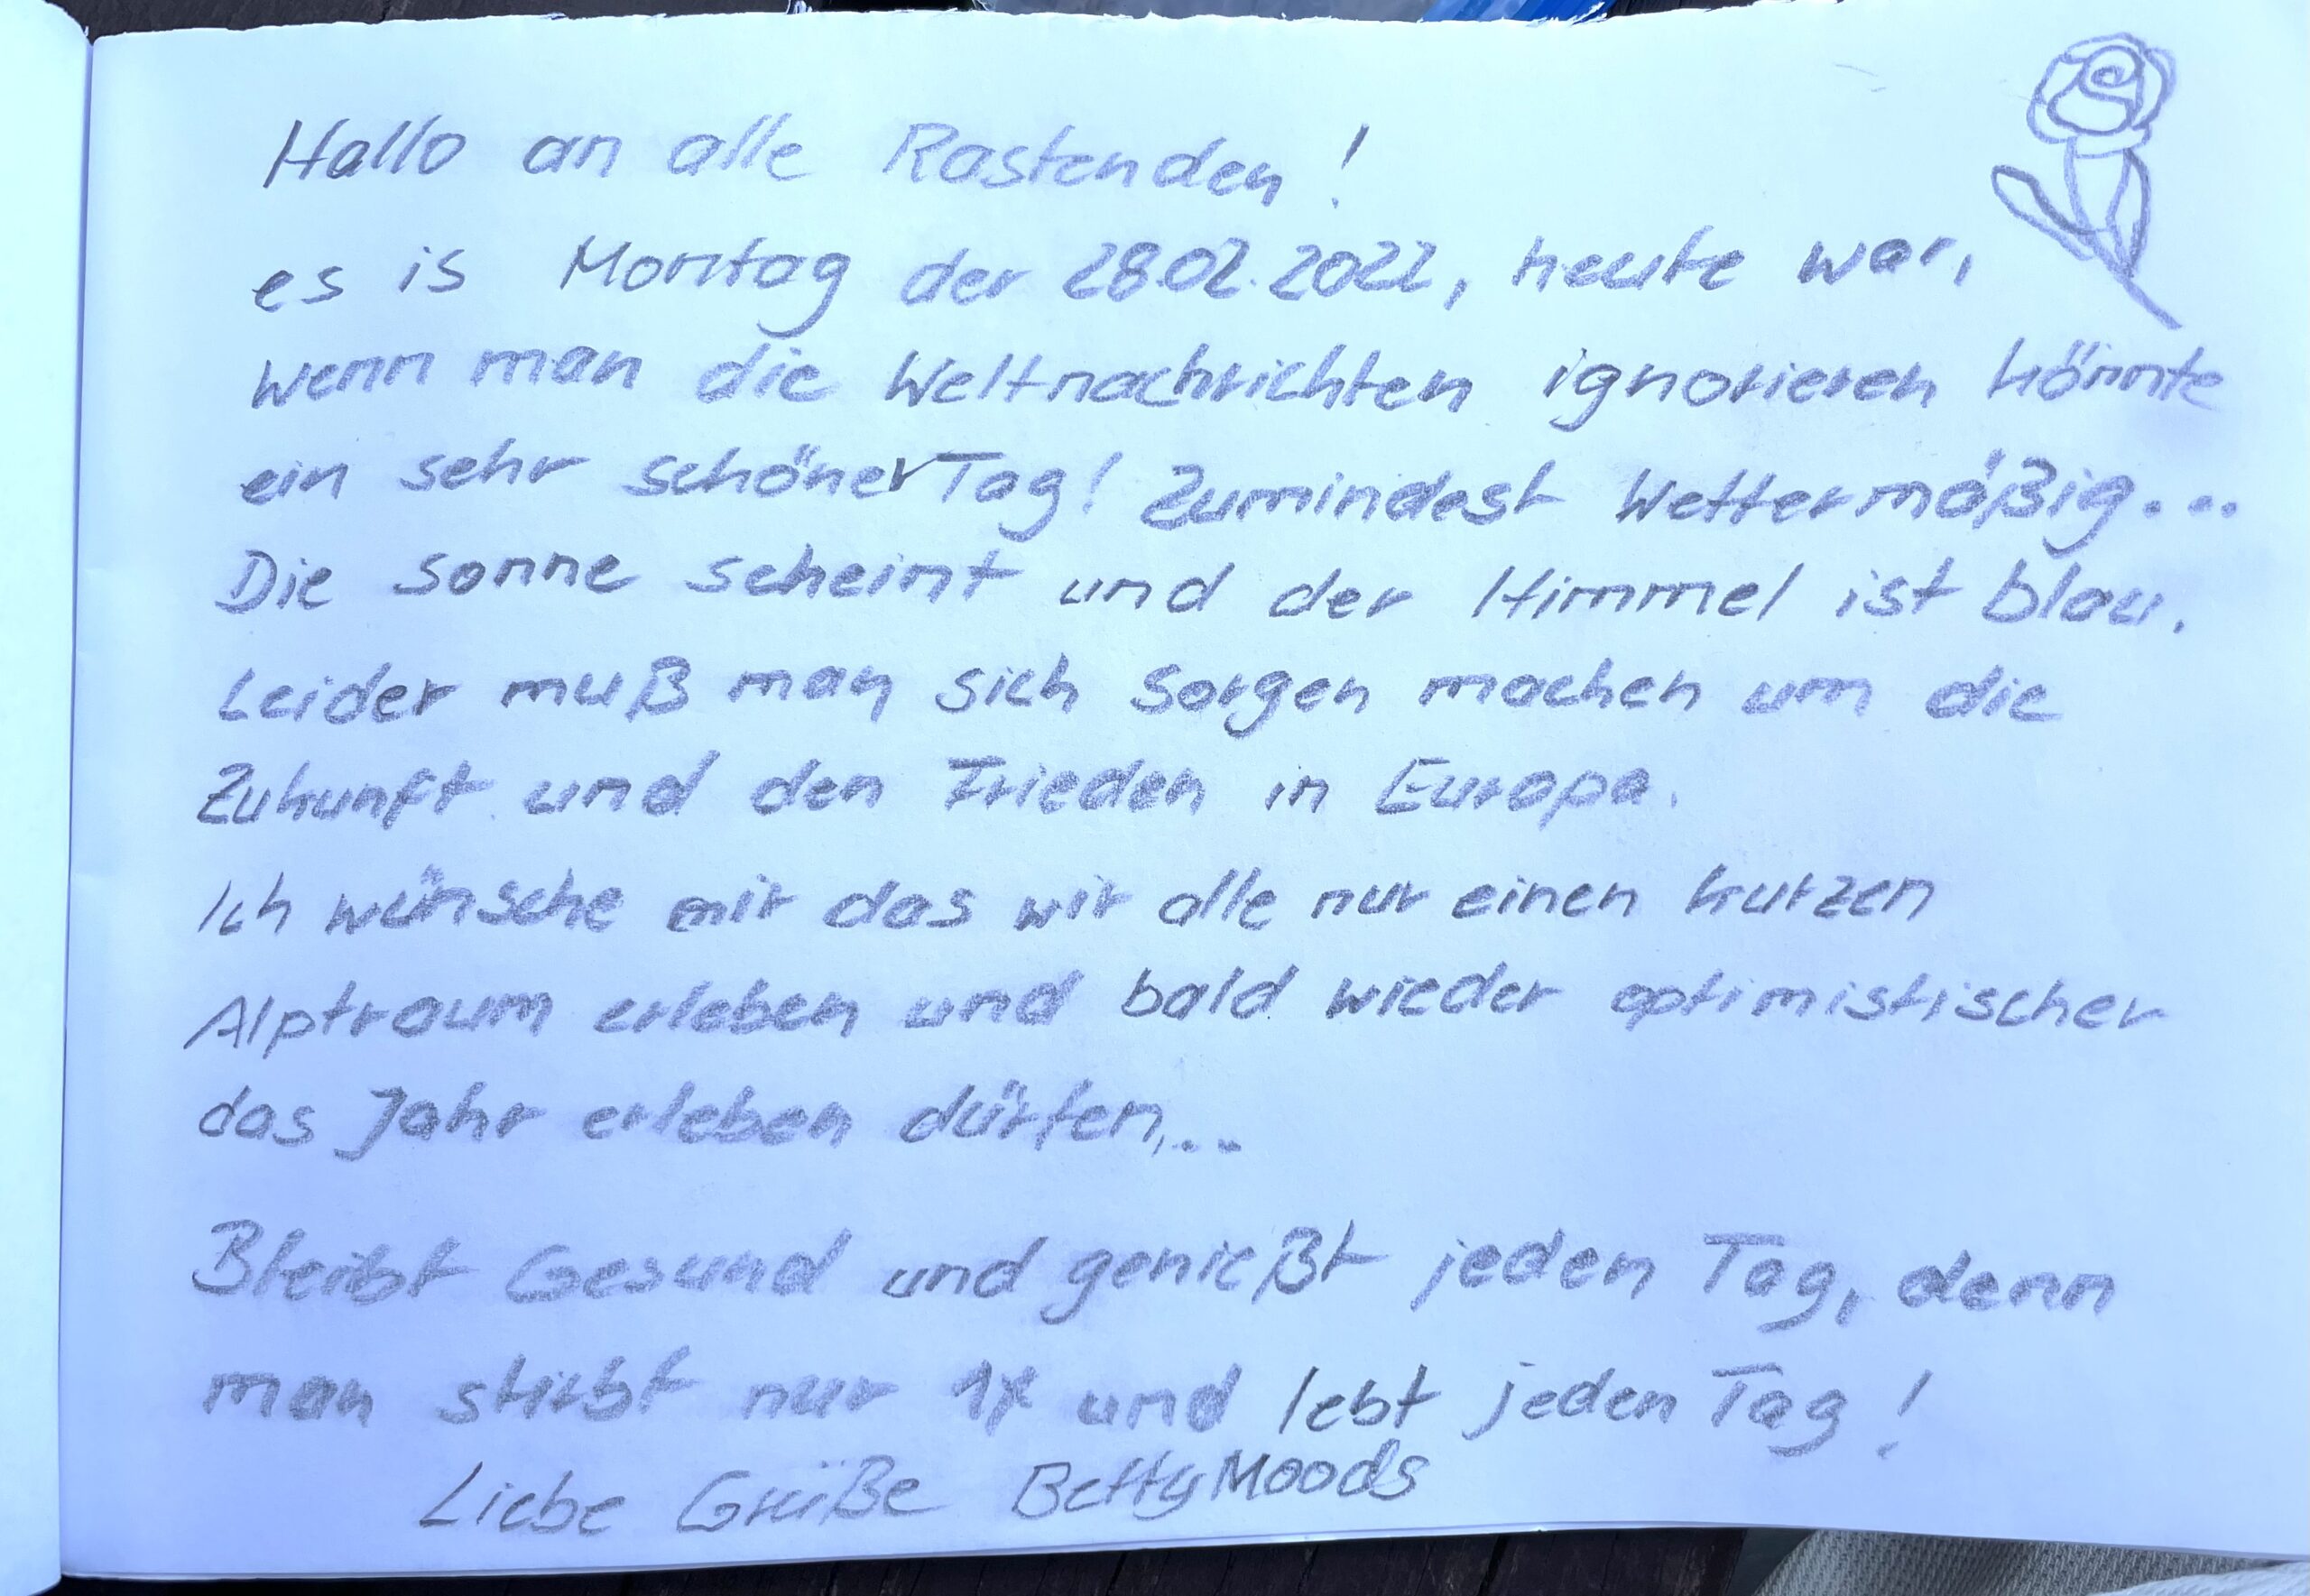 Hallo an alle Rastenden!
es is Montag der 28.02.2022, heute war,
wenn man die Weltnachrichten ignorieren könnte
ein sehr schöner Tag! Zumindest Wettermäßig...
Die sonne scheint und der Himmel ist blau.
Leider muß man sich sorgen machen um die
Zukunft und den Frieden in Europa.
Ich wünsche mir das wir alle nur einen kurzen
Alptraum erleben und bald wieder optimistischer
das Jahr erleben dürfen...
Bleibt Gesund und genießt jeden Tag, denn
man stirbt nur 1x und lebt jeden Tag!
Liebe Grüße BettyMoods